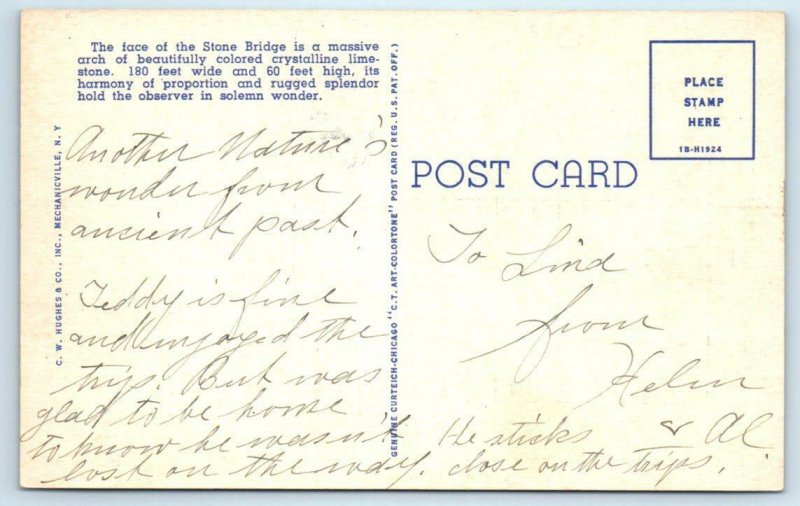 The face of the Stone Bridge is a massive
arch of beautifully colored crystalline lime-
stone. 180 feet wide and 60 feet high, its
harmony of proportion and rugged splendor
hold the observer in solemn wonder.
Another Nature's
wonder from
ancient past.
Teddy is fine
and enjoyed the
trip. But was
glad to be home
to know he wasn't
lost on the way.
He sticks
close on the trips.
C. W. HUGHES & CO., INC., MECHANICVILLE, N. Y
GENUINE CURTEICH-CHICAGO "C.T. ART-COLORTONE" POST CARD (REG. U.S. PAT. OFF.)
POST CARD
PLACE
STAMP
HERE
1B-H1924
To Lind
from
Helen
& Al